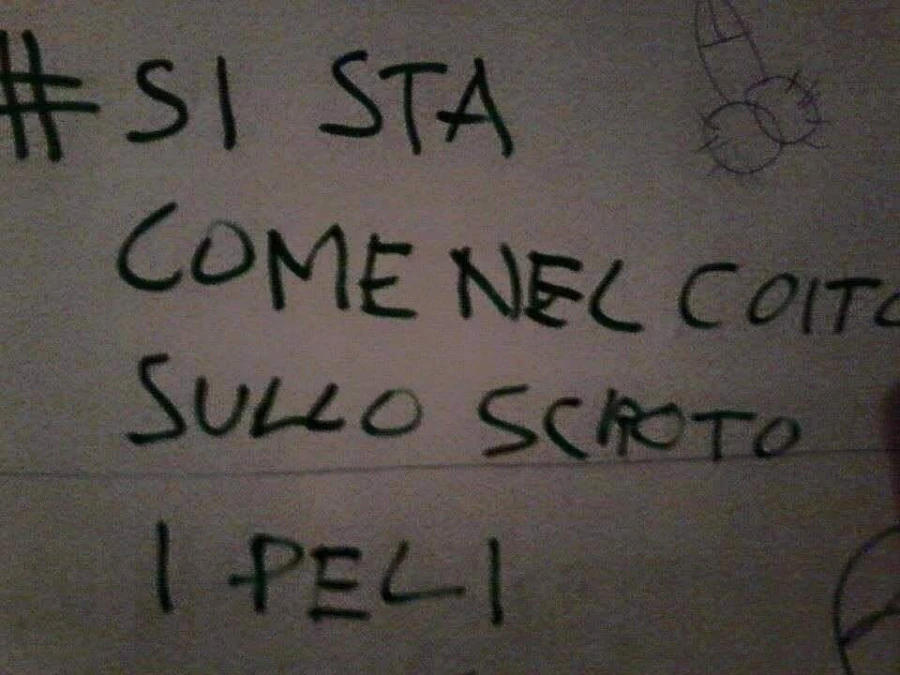 # SI STA
COME NEL COITO
SULLO SCROTO
I PELI